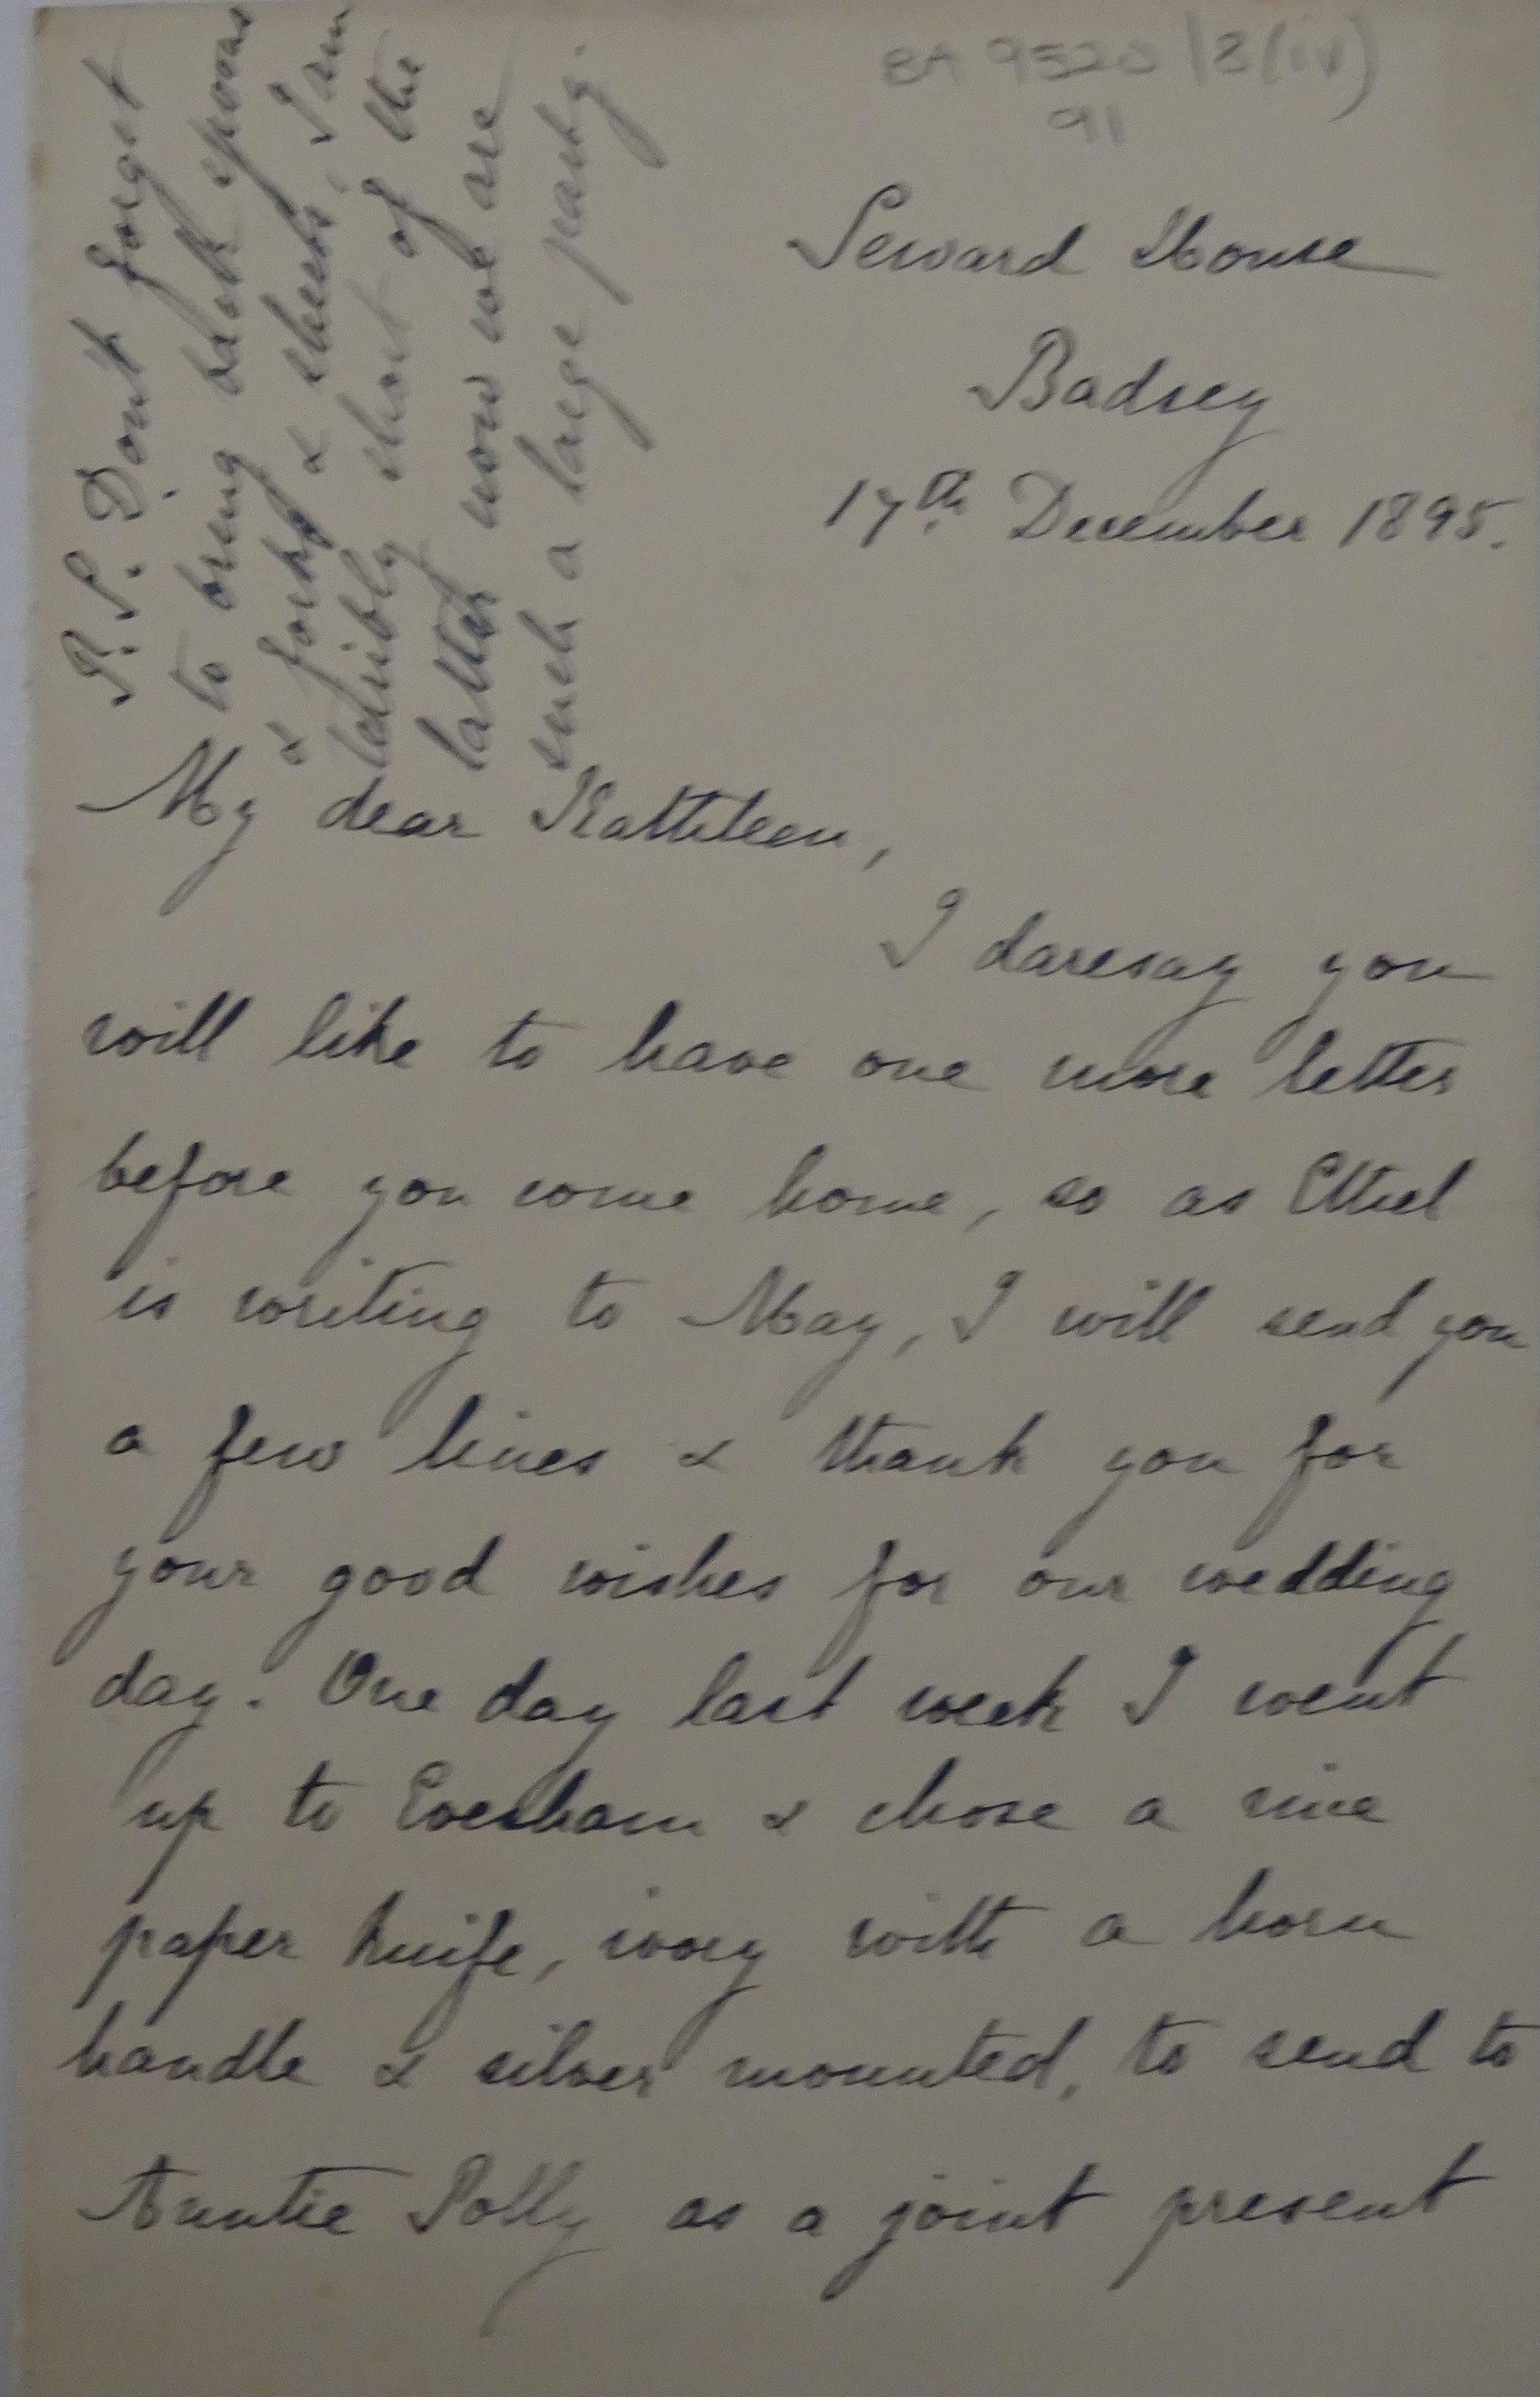 BA 9520/8(iv)
91
Seward House
Badsey
17th December 1895.
My dear Kathleen,
I daresay you
will like to have one more letter
before you come home, so as Ethel
is writing to May, I will send you
a few lines & thank you for
your good wishes for our wedding
day. One day last week I went
up to Evesham & chose a nice
paper knife, ivory with a horn
handle & silver mounted, to send to
Auntie Polly as a joint present
P.S. Don't forget
to bring back spoons
& forks & sheets, I am
terribly short of the
latter now we are
such a large party.